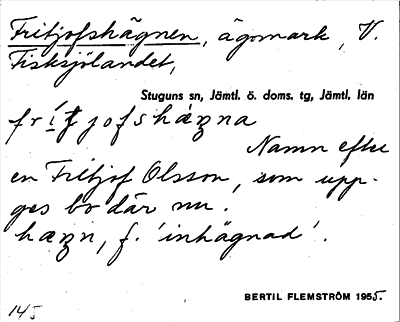 Fritjofshägnen, ägomark, V.
Fisksjölandet,
Stuguns sn, Jämtl. ö. doms. tg, Jämtl. län
frítjofshæŋna
Namn efter
en Fritjof Olsson, som upp-
ges bo där nu.
hæŋn, f. 'inhägnad'.
BERTIL FLEMSTRÖM 1955.
145